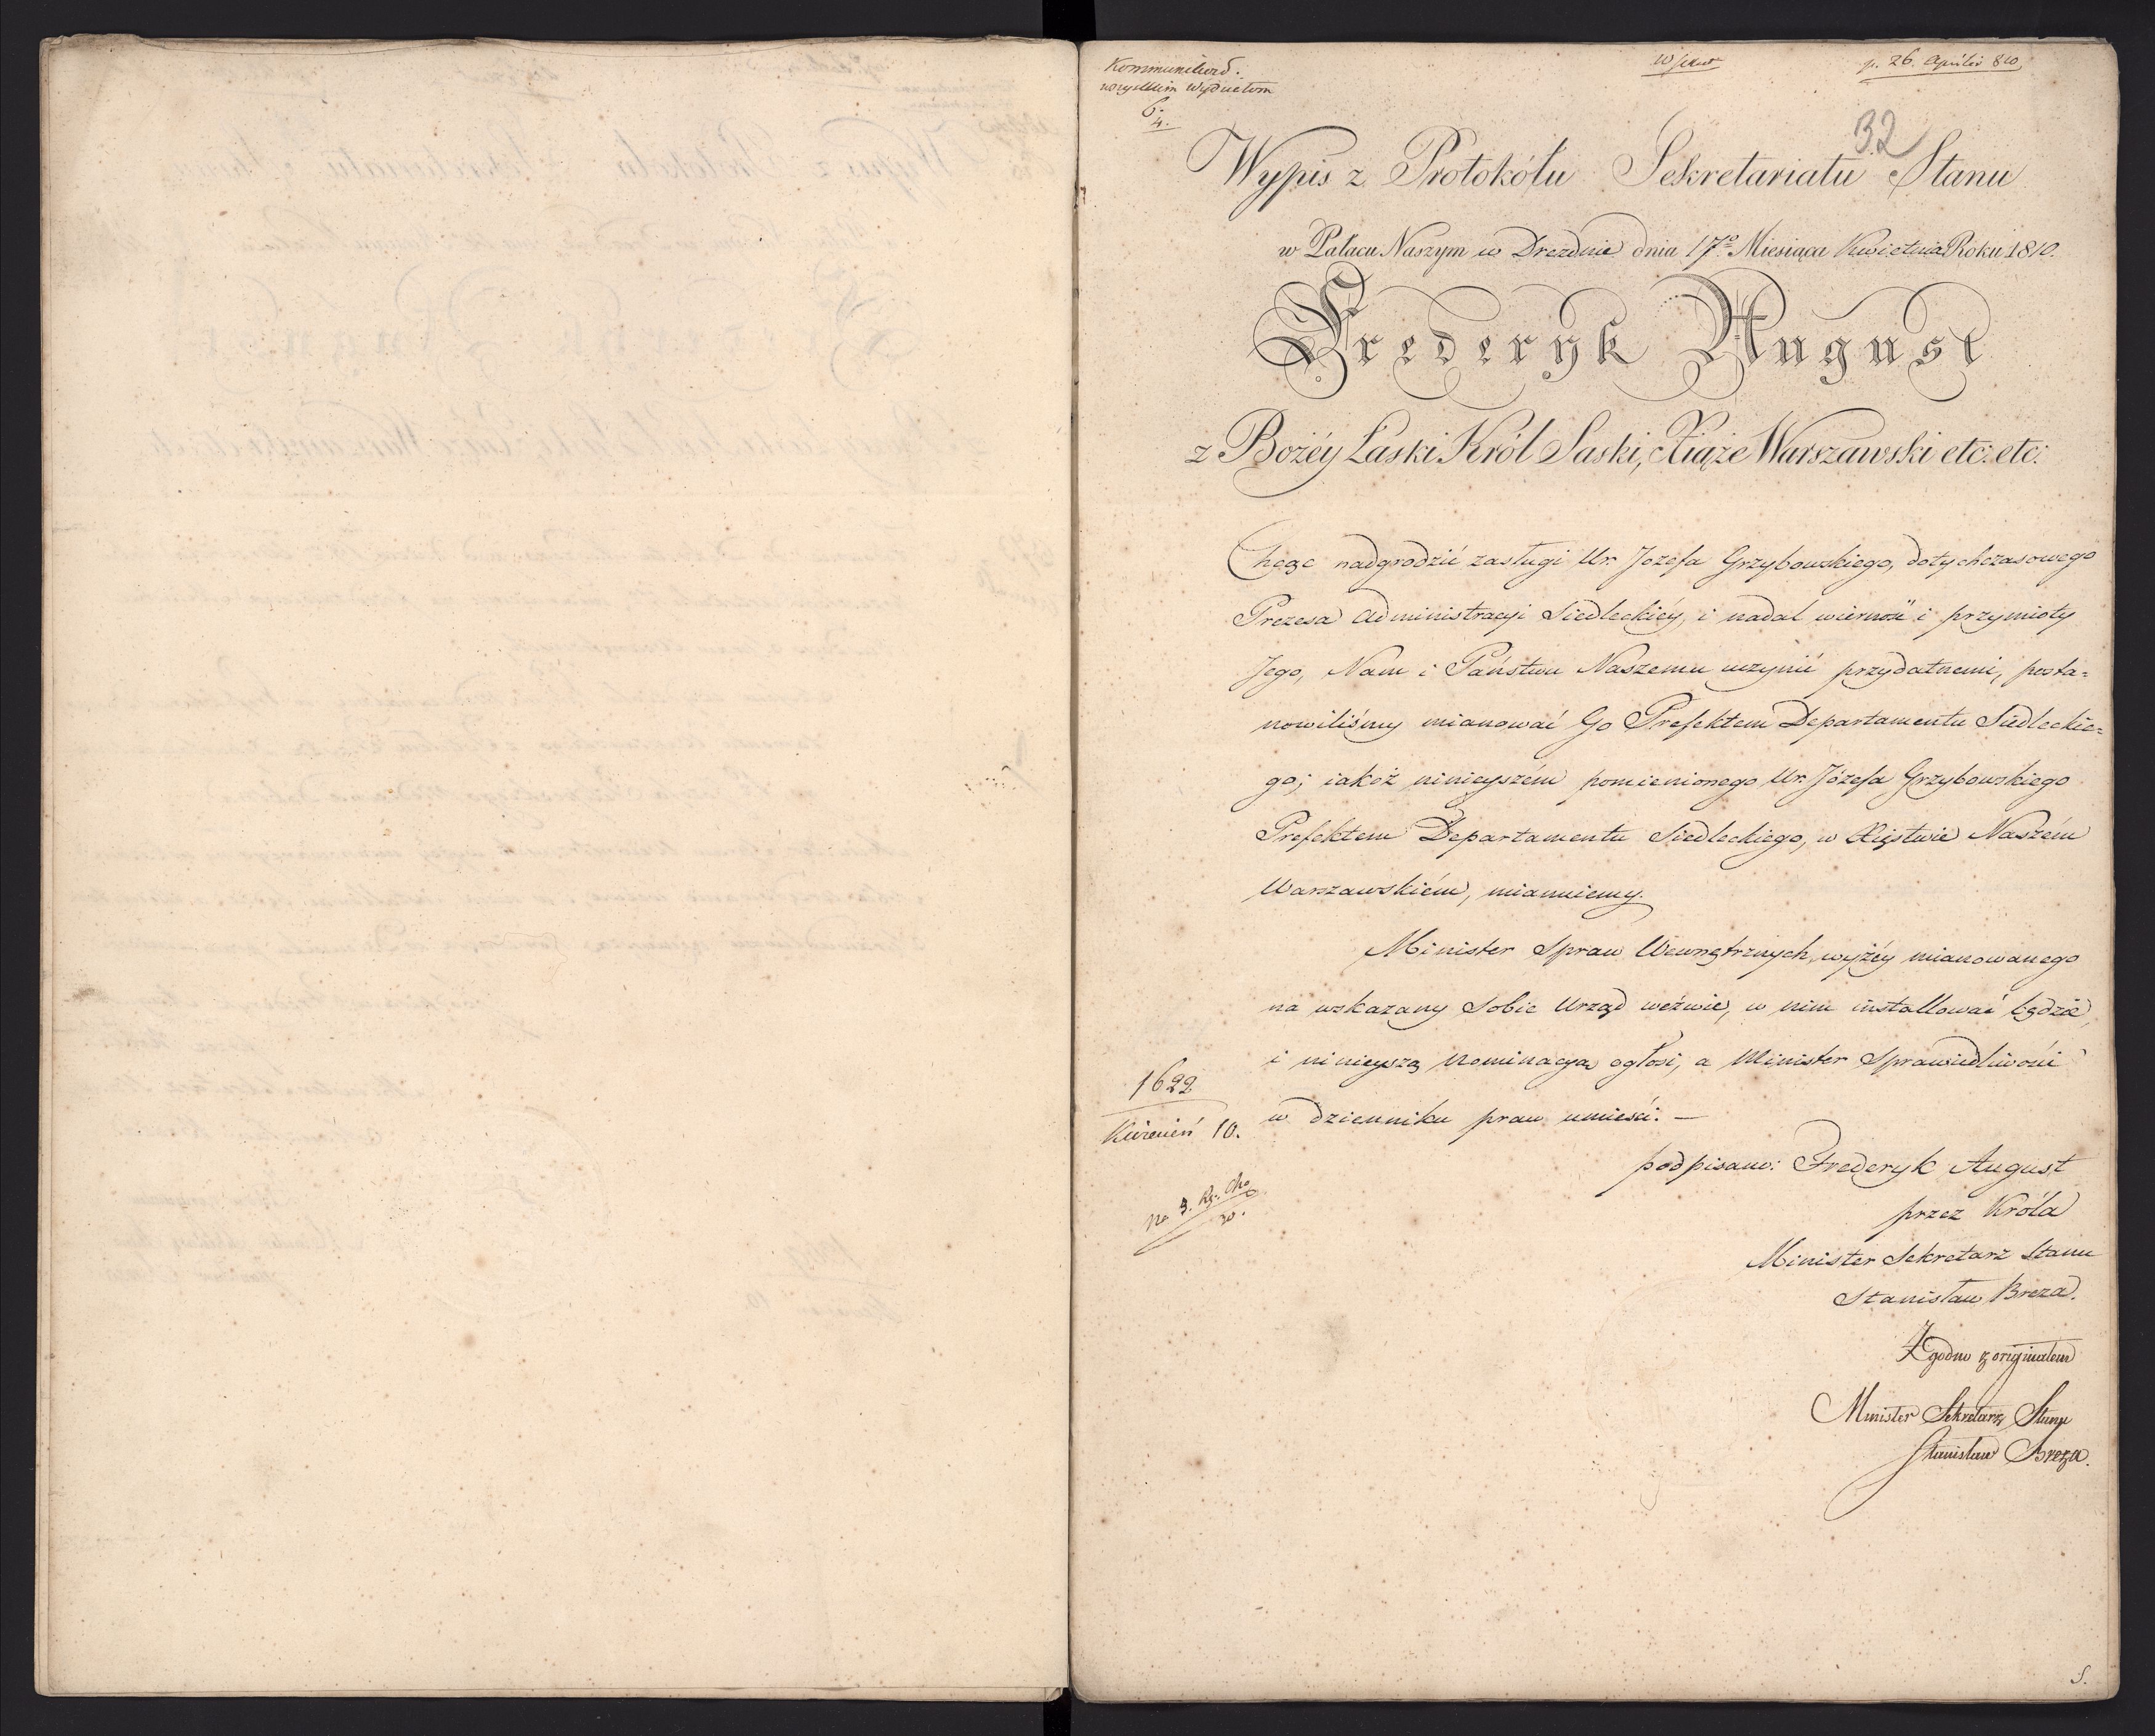 Kommunikard.
wszystkim Wydziałom
6/4.
p. 26. Aprilis 810.
32
Wypis z Protokółu Sekretariatu Stanu
w Pałacu Naszym w Dreznie dnia 17º Miesiąca Kwietnia Roku 1810.
Frederyk August
z Bożéy Łaski Król Saski, Xiąże Warszawski etc: etc:
Chcąc nadgrodzić zasługi Ur. Jozefa Grzybowskiego, dotychczasowego
Prezesa Administracyi Siedleckiéy, i nadal wierność i przymioty
Jego, Nam i Państwu Naszemu uczynić przydatnemi, posta=
nowiliśmy mianować Go Prefektem Departamentu Siedleckie=
go; iakoż ninieyszém pomienionego Ur. Józefa Grzybowskiego
Prefektem Departamentu Siedleckiego, w Xięstwie Naszém
Warszawskiém, mianuiemy.
Minister Spraw Wewnętrznych, wyżéy mianowanego
na wskazany Sobie Urząd wezwie, w nim installować będzie,
i ninieyszą Nominacyą ogłosi, a Minister Sprawiedliwości
w dzienniku praw umieści. —
1622.
Kwiecień 10.
podpisano: Frederyk August
przez Króla
Minister Sekretarz Stanu
Stanisław Breza.
Zgodno z originałem
Minister Sekretarz Stanu
Stanisław Breza.
S.